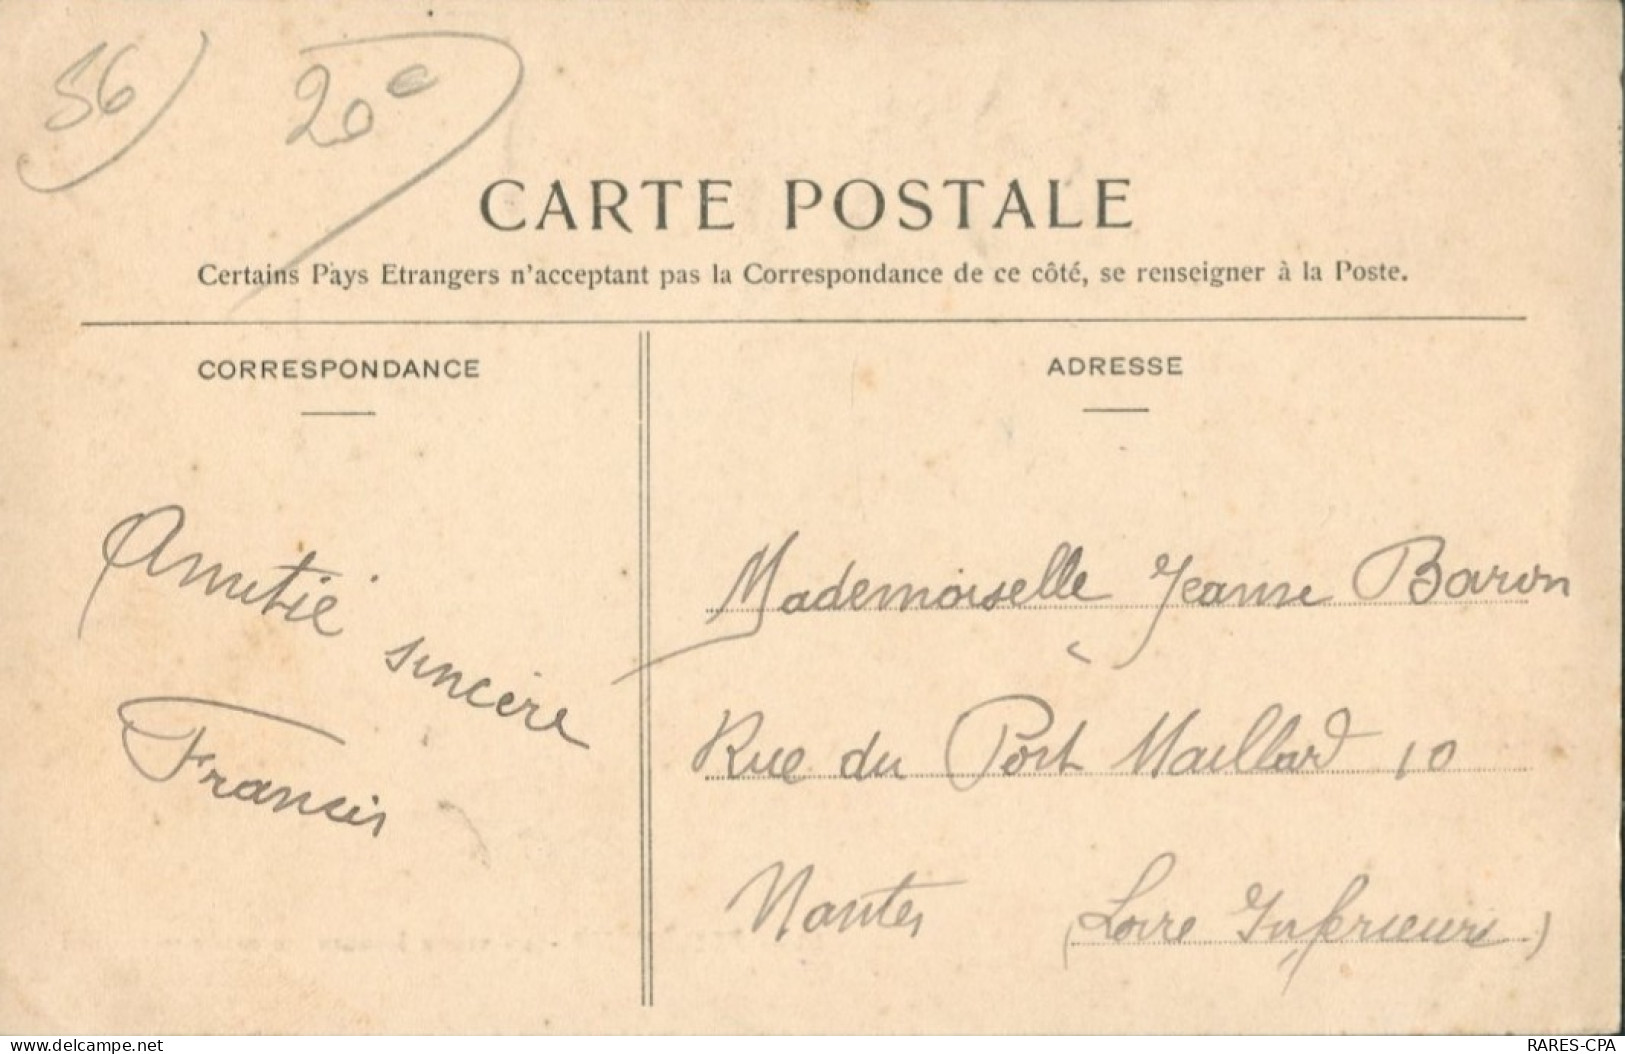 56
20 c
CARTE POSTALE
Certains Pays Etrangers n'acceptant pas la Correspondance de ce côté, se renseigner à la Poste.
CORRESPONDANCE
Amitié sincère
Francis
ADRESSE
Mademoiselle Jeanne Baron
Rue du Port Maillard 10
Nantes (Loire Inférieure)
www.delcampe.net
RARES-CPA